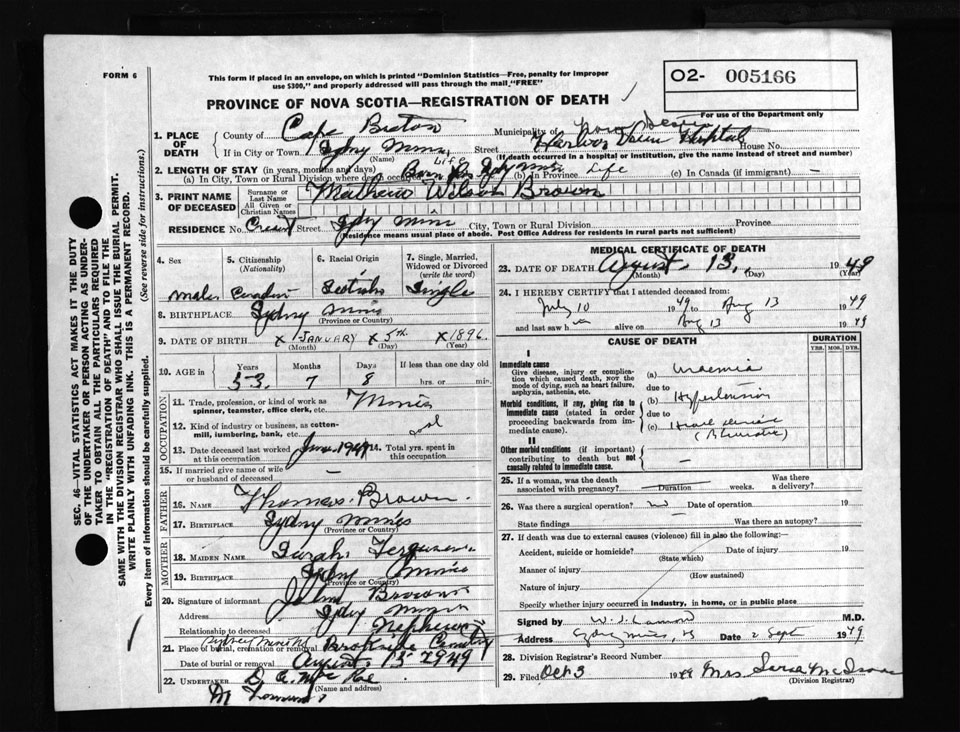 FORM 6
This form if placed in an envelope, on which is printed "Dominion Statistics—Free, penalty for improper
use $300," and properly addressed will pass through the mail, "FREE"
PROVINCE OF NOVA SCOTIA—REGISTRATION OF DEATH
O2- 005166
For use of the Department only
SEC. 46—VITAL STATISTICS ACT MAKES IT THE DUTY
OF THE UNDERTAKER OR PERSON ACTING AS UNDER-
TAKER TO OBTAIN ALL THE PARTICULARS REQUIRED
IN THE "REGISTRATION OF DEATH" AND TO FILE THE
SAME WITH THE DIVISION REGISTRAR WHO SHALL ISSUE THE BURIAL PERMIT.
WRITE PLAINLY WITH UNFADING INK. THIS IS A PERMANENT RECORD.
Every item of information should be carefully supplied. (See reverse side for instructions.)
1. PLACE OF DEATH
County of Cape Breton Municipality of
If in City or Town Sydney Mines Street Harbor View Hospital House No.
(Name) (If death occurred in a hospital or institution, give the name instead of street and number)
2. LENGTH OF STAY (in years, months and days)
(a) In City, Town or Rural Division where death occurred Life (b) In Province Life (c) In Canada (if immigrant) —
3. PRINT NAME OF DECEASED
Surname or Last Name
All Given or Christian Names
Wilson Brown
RESIDENCE No. Street Sydney Mines City, Town or Rural Division Province
(Residence means usual place of abode. Post Office Address for residents in rural parts not sufficient)
4. Sex
Male
5. Citizenship
(Nationality)
Canadian
6. Racial Origin
Scotish
7. Single, Married,
Widowed or Divorced
(write the word)
Single
8. BIRTHPLACE Sydney Mines
(Province or Country)
9. DATE OF BIRTH x JANUARY x 5th x 1896
(Month) (Day) (Year)
10. AGE IN
Years Months Days If less than one day old
53 7 8 hrs. or min.
OCCUPATION
11. Trade, profession, or kind of work as
spinner, teamster, office clerk, etc.
12. Kind of industry or business, as cotton-
mill, lumbering, bank, etc.
13. Date deceased last worked
at this occupation June 1949
14. Total yrs. spent
in this occupation
15. If married give name of wife
or husband of deceased —
FATHER
16. NAME Thomas Brown
17. BIRTHPLACE Sydney Mines
(Province or Country)
MOTHER
18. MAIDEN NAME Sarah Ferguson
19. BIRTHPLACE Sydney Mines
(Province or Country)
20. Signature of informant John Brown
Address Sydney Mines
Relationship to deceased Nephew
21. Place of burial, cremation or removal Brookside Cemetery
Date of burial or removal August 15 1949
22. UNDERTAKER
(Name and address)
MEDICAL CERTIFICATE OF DEATH
23. DATE OF DEATH August 13, 1949
(Month) (Day) (Year)
24. I HEREBY CERTIFY that I attended deceased from:
July 10 1949 to Aug 13 1949
and last saw him alive on Aug 13 1949
CAUSE OF DEATH
DURATION
YRS. MOS. DYS.
I
Immediate cause
Give disease, injury or complica-
tion which caused death, Not the
mode of dying, such as heart failure,
asphyxia, asthenia, etc.
(a) Uraemia
due to
Morbid conditions, if any, giving rise to
immediate cause (stated in order
proceeding backwards from im-
mediate cause).
(b) Hypertension
due to
(c) Heart disease
(Rheumatic)
II
Other morbid conditions (if important)
contributing to death but not
causally related to immediate cause.
—
25. If a woman, was the death
associated with pregnancy? Duration weeks. Was there
a delivery?
26. Was there a surgical operation? no Date of operation 19
State findings Was there an autopsy?
27. If death was due to external causes (violence) fill in also the following:
Accident, suicide or homicide? Date of injury 19
(State which)
Manner of injury
(How sustained)
Nature of injury
Specify whether injury occurred in industry, in home, or in public place
Signed by M.D.
Address Sydney Mines, NS Date 2 Sept 1949
28. Division Registrar's Record Number
29. Filed Oct 3 1949
(Division Registrar)